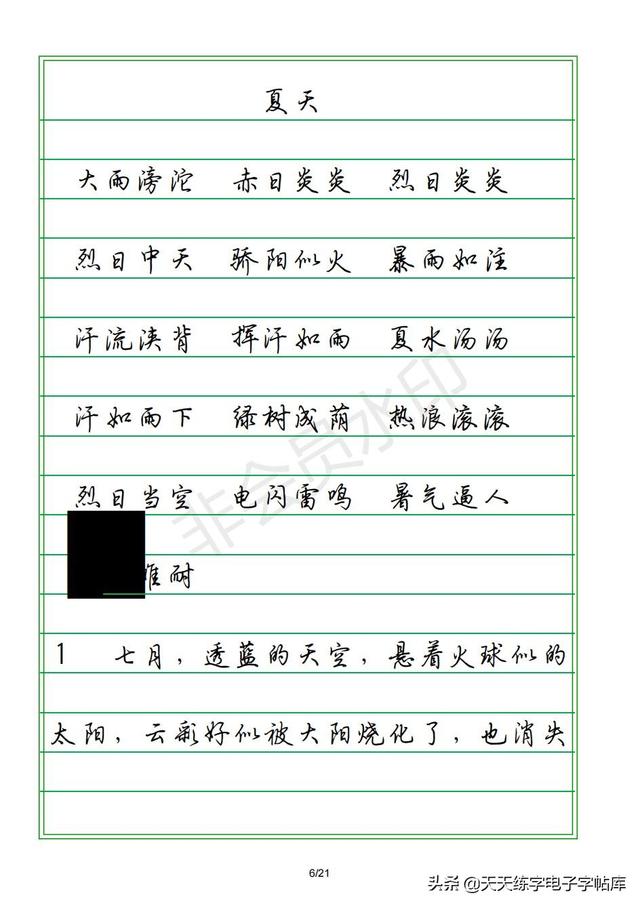 夏天
大雨滂沱 赤日炎炎 烈日炎炎
烈日中天 骄阳似火 暴雨如注
汗流浃背 挥汗如雨 夏水汤汤
汗如雨下 绿树成荫 热浪滚滚
烈日当空 电闪雷鸣 暑气逼人
耐
1 七月，透蓝的天空，悬着火球似的
太阳，云彩好似被大阳烧化了，也消失
非会员水印
6/21
头条 @天天练字电子字帖库